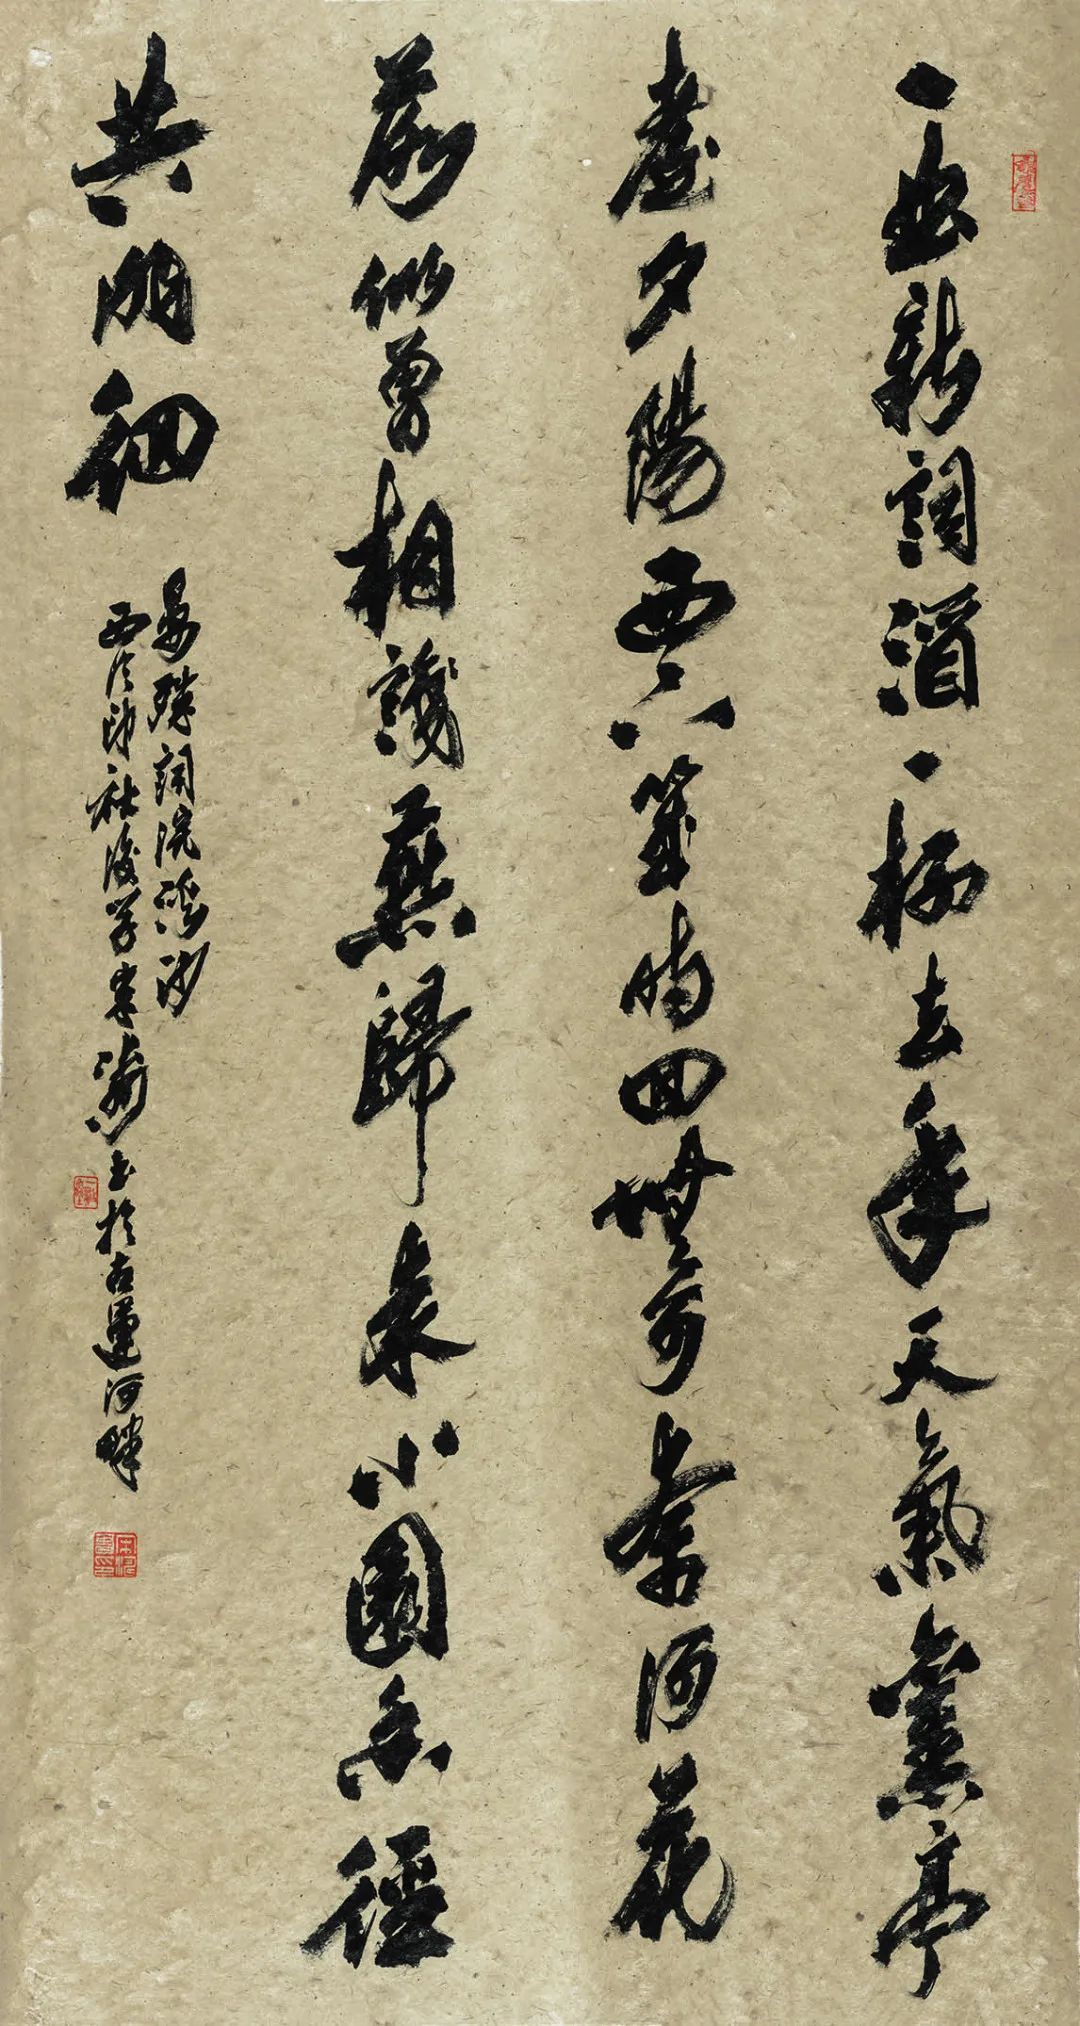 一曲新詞酒一杯去年天氣亭
臺夕陽西下幾時回無可奈何花
落似曾相識燕歸來小園香徑
共徊
晏殊詞浣溪沙
西泠印社後學书於古運河畔